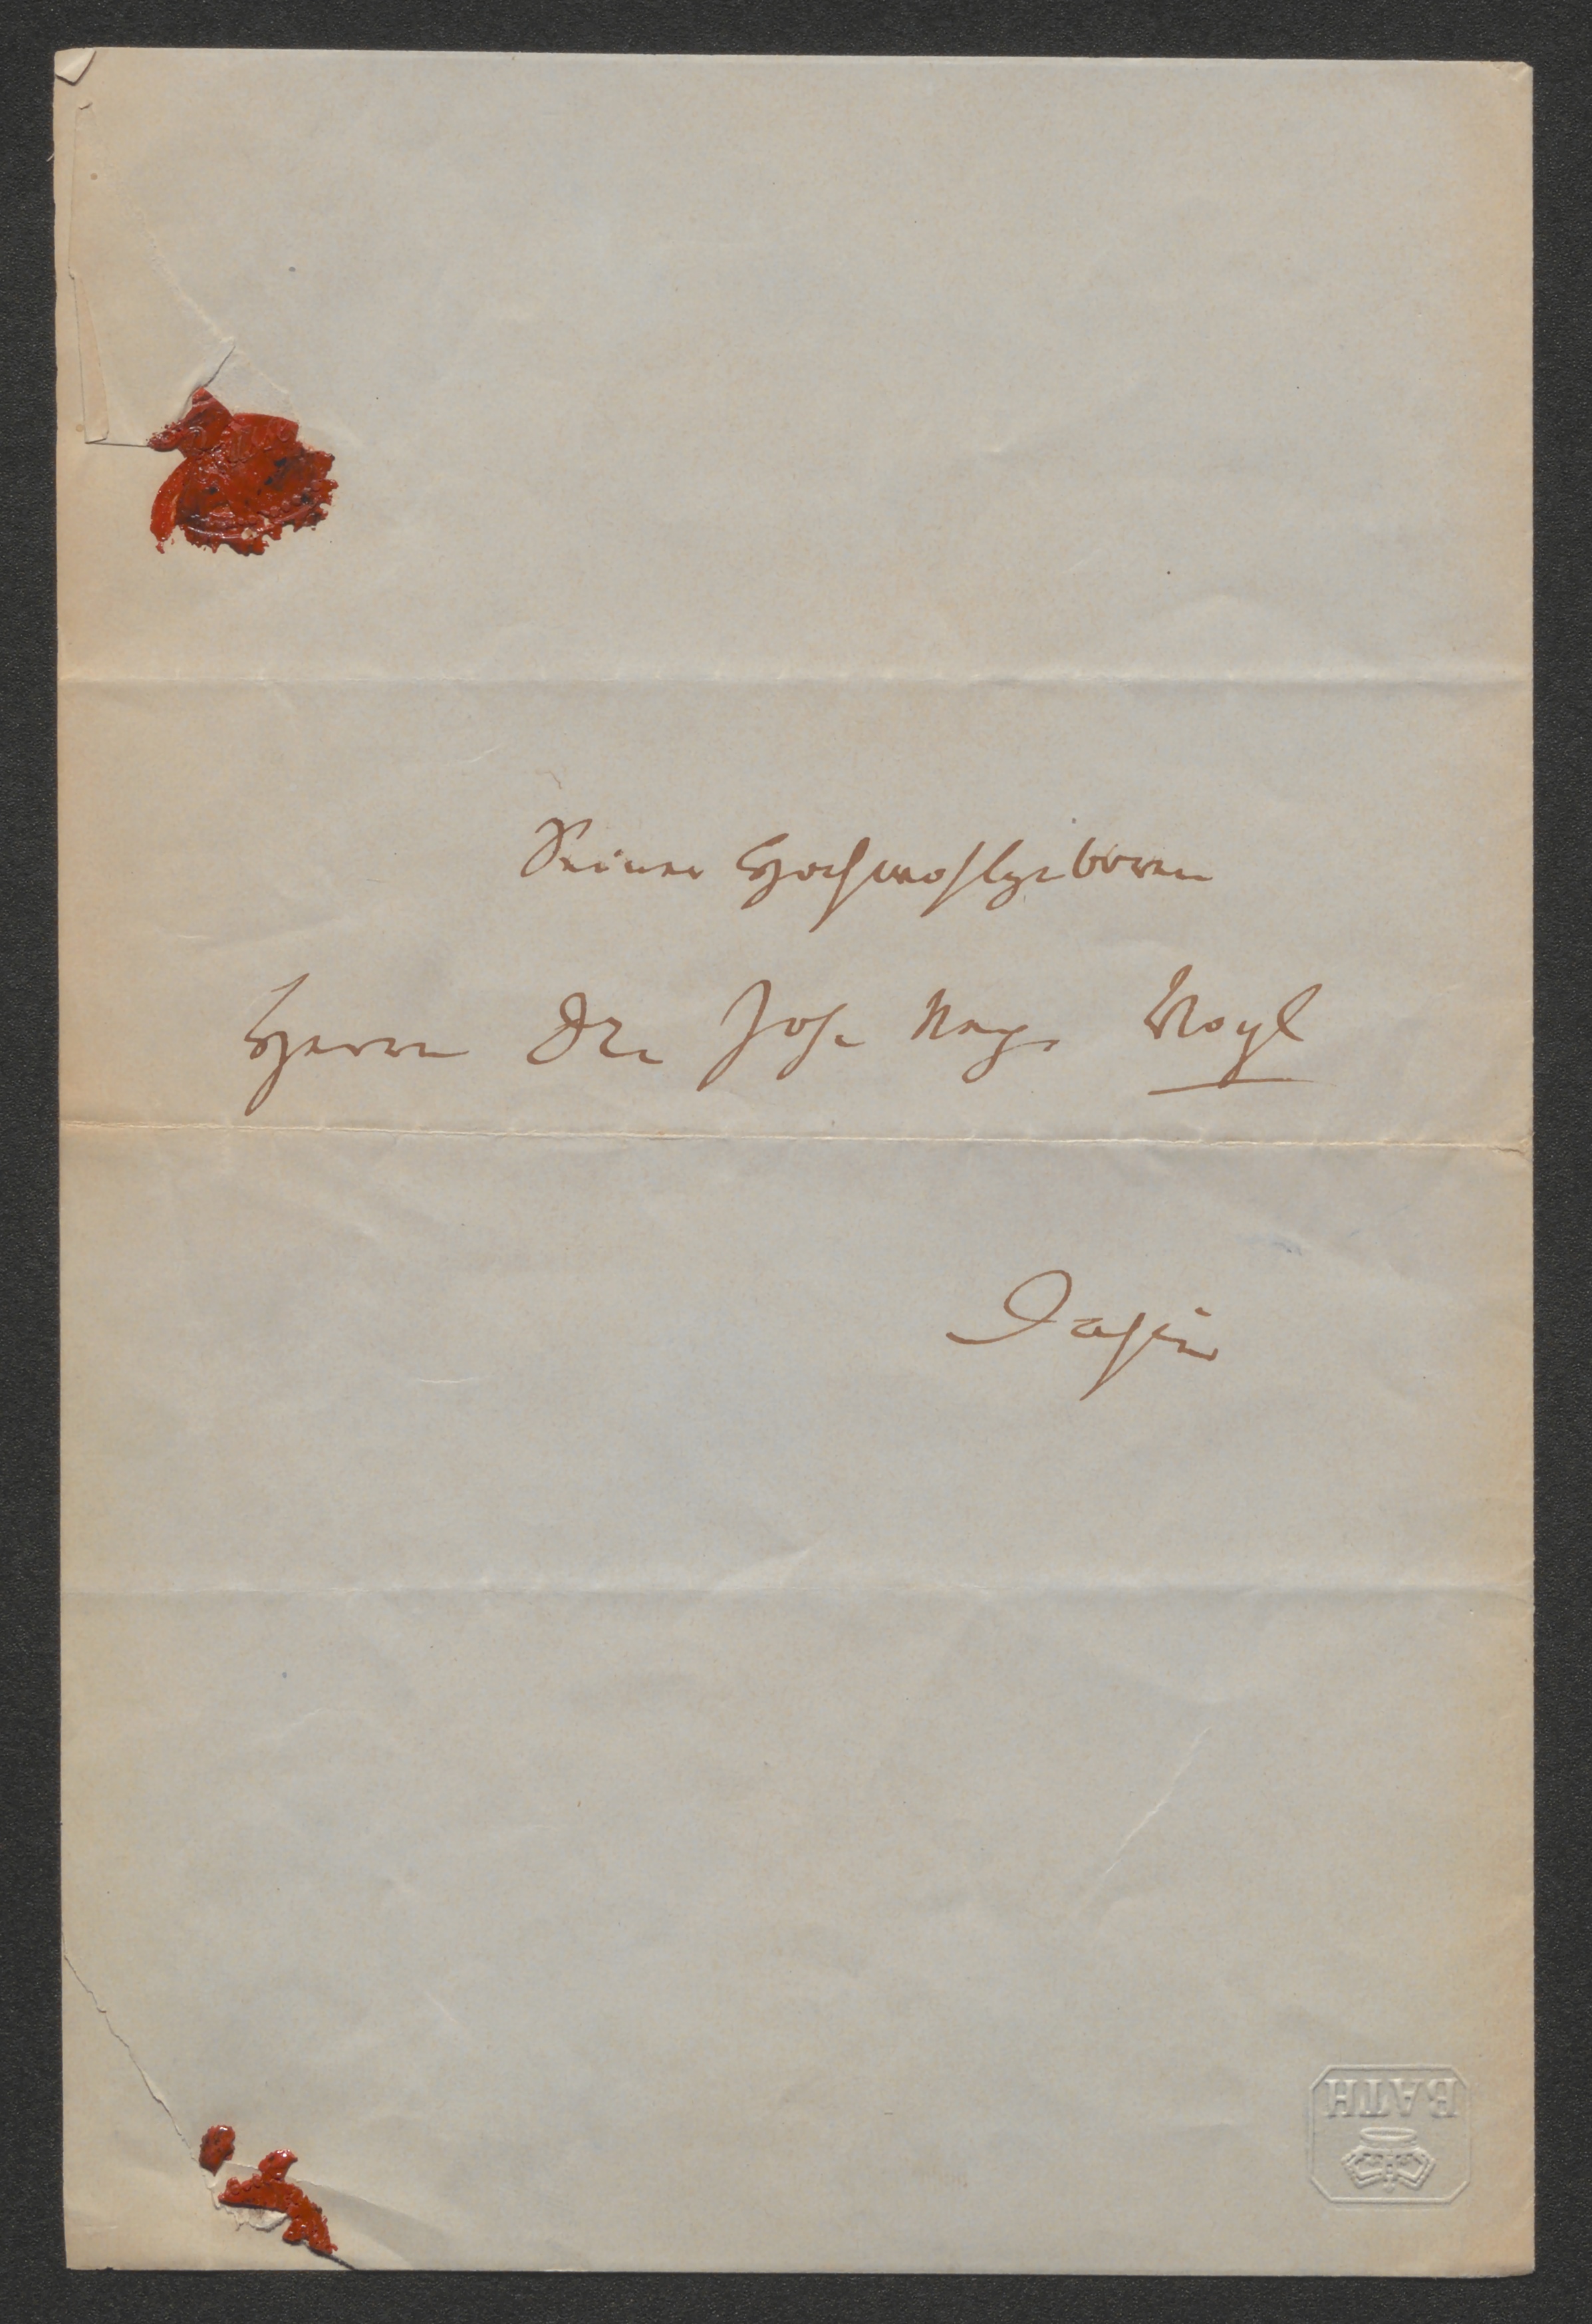 Seiner Hochwohlgeboren
Herrn Dr. Joh. Nep. Vogl
Dahier
BATH